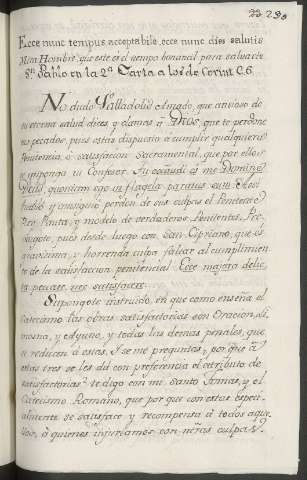 23 295
Ecce nunc tempus acceptabile, ecce nunc dies salutis
Mira Hombre, que este es el tiempo bonancil para salvarte
Sn. Pablo en la 2ª Carta a los de Corint. C. 6.
No dudo Valladolid Amado, que ansioso de
tu eterna salud dices, y clamas â DIOS, que te perdone
tus pecados, pues estas dispuesto â cumplir qualquiera
Penitencia, ô satisfacion Sacramental, que por ellos
te ymponga tu Confesor.
Deus, quoniam ego in flagella paratus sum
y consiguiô perdon de sus culpas el Penitente
Rey Profeta, y modelo de verdaderos Penitentes.
pues desde luego con San Cipriano, que es
gravisima, y horrenda culpa faltar al cumplimien-
to de la satisfacion penitencial.
ta peccare, nec satisfacere.
Supongote instruido, en que como enseña el
Catecismo las obras satisfactorias son Oracion, Li-
mosna, y Ayuno, y todas las demas penales, que
se reducen â estas. Y se me preguntas, por que â
estas tres se les diô con preferencia el atributo de
satisfactorias? te digo con mi Santo Tomas, y el
Catecismo Romano, que por que con estas especi-
almente se satisface y recompensa â todos aque-
llos, â quienes injuriamos con nrâs culpas.